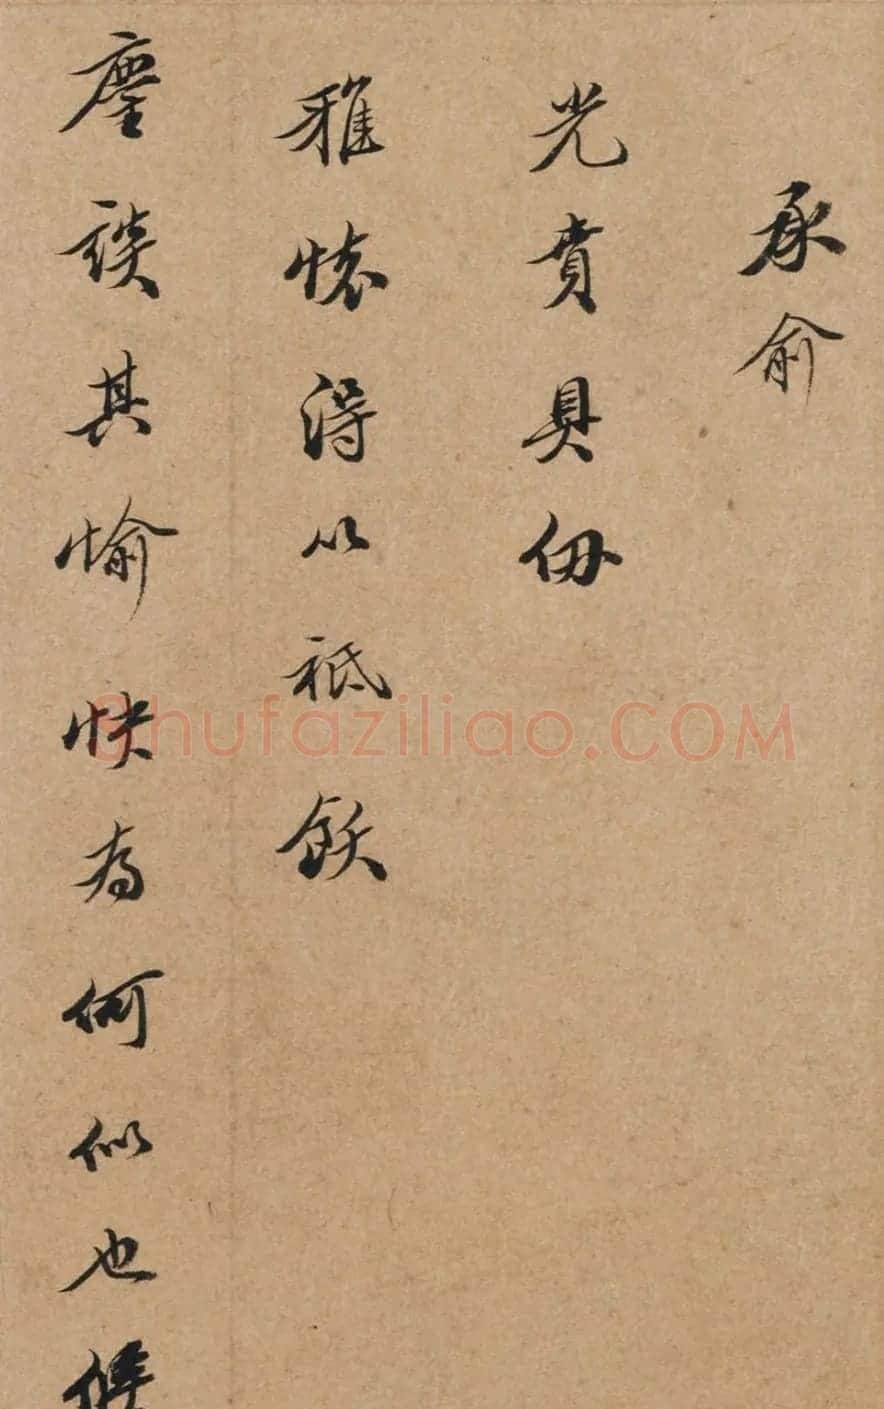 承俞
光賁具仞
雅懷得以祗飫
麈談其愉快為何似也
Shufaziliao.COM